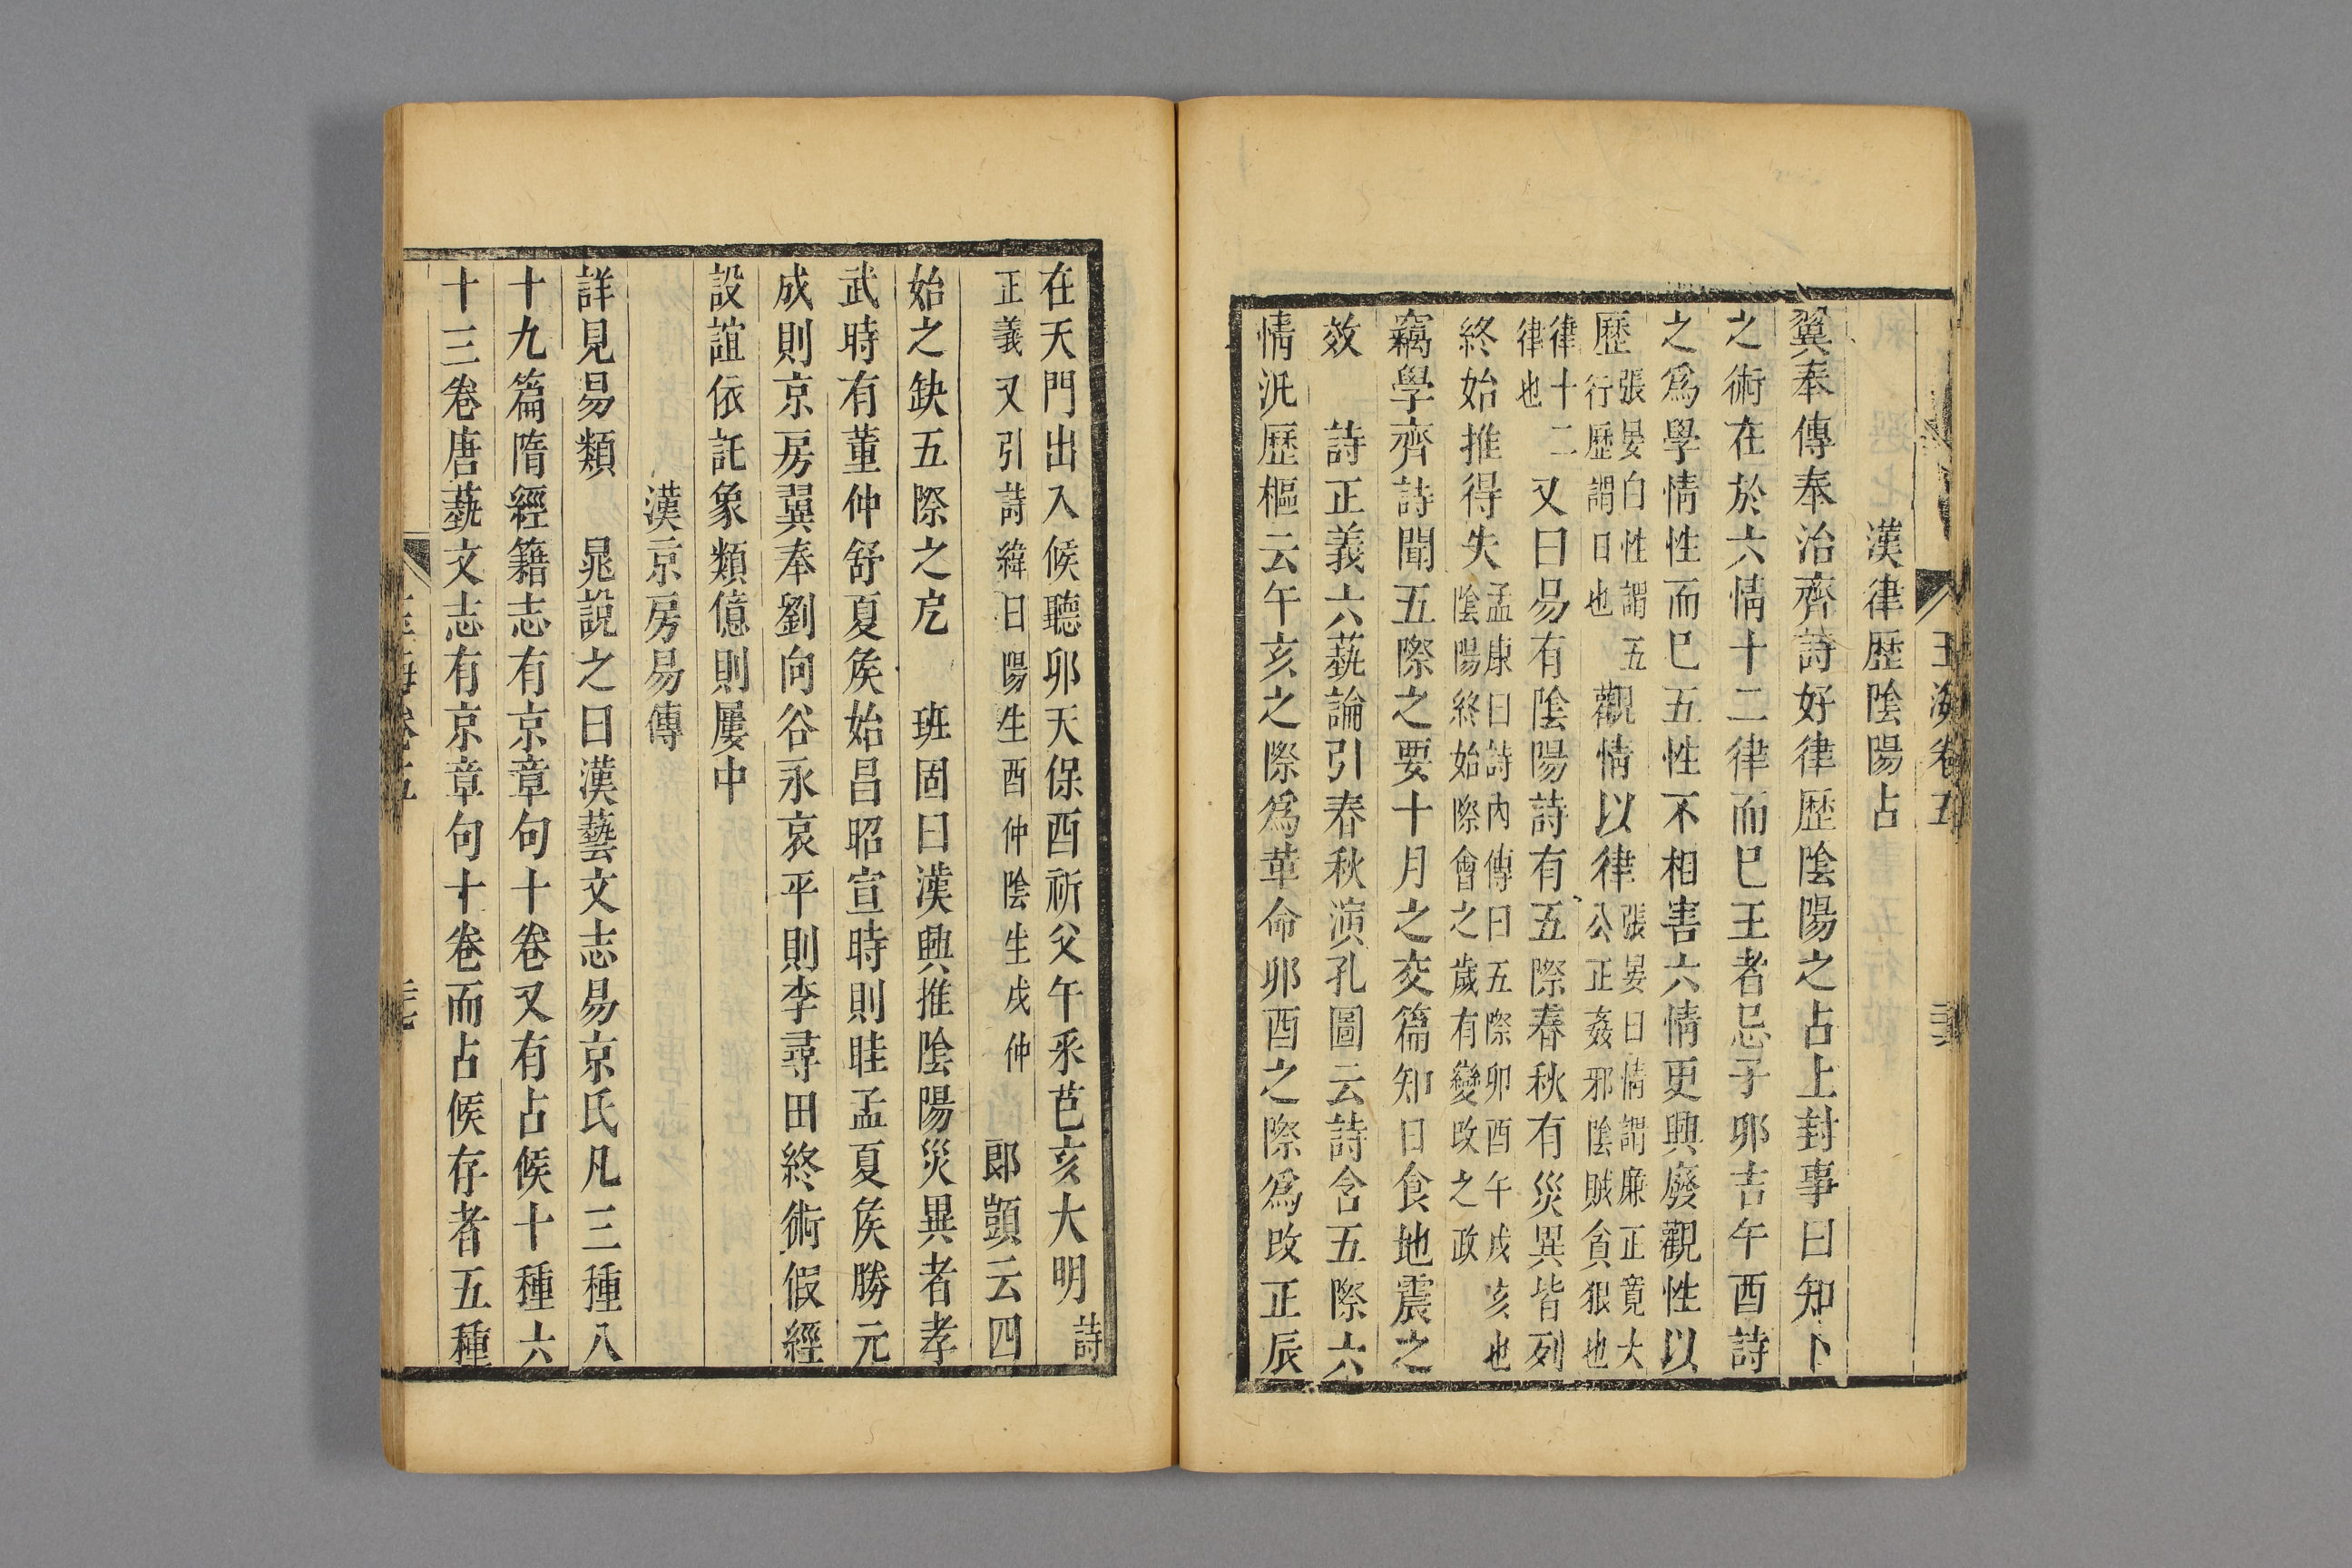 玉海卷五
漢律歴陰陽占
翼奉傳奉治齊詩好律歴陰陽之占上封事曰知卜
之術在於六情十二律而巳王者忌子卯吉午酉詩
之爲學情性而巳五性不相害六情更興廢觀性以
歷張晏白性謂五行歷謂日也觀情以律張晏曰情謂廉正寛大公正姦邪陰賊貪狠也
律十二律也又曰易有陰陽詩有五際春秋有災異皆列
終始推得失孟康曰詩内傳曰五際卯酉午戌亥也陰陽終始際會之歲有變改之政
竊學齊詩聞五際之要十月之交篇知日食地震之
效　詩正義六藝論引春秋演孔圖云詩含五際六
情汎歷樞云午亥之際爲革命卯酉之際爲改正辰
在天門出入候聽卯天保酉祈父午釆芑亥大明詩
正義又引詩緯曰陽生酉仲陰生戌仲　郎顗云四
始之缺五際之戹　班固曰漢興推陰陽災異者孝
武時有董仲舒夏矦始昌昭宣時則眭孟夏矦勝元
成則京房翼奉劉向谷永哀平則李尋田終術假經
設誼依託象類億則屢中
漢京房易傳
詳見易類　晁說之曰漢藝文志易京氏凡三種八
十九篇隋經籍志有京章句十卷又有占候十種六
十三卷唐藝文志有京章句十卷而占候存者五種
卷五